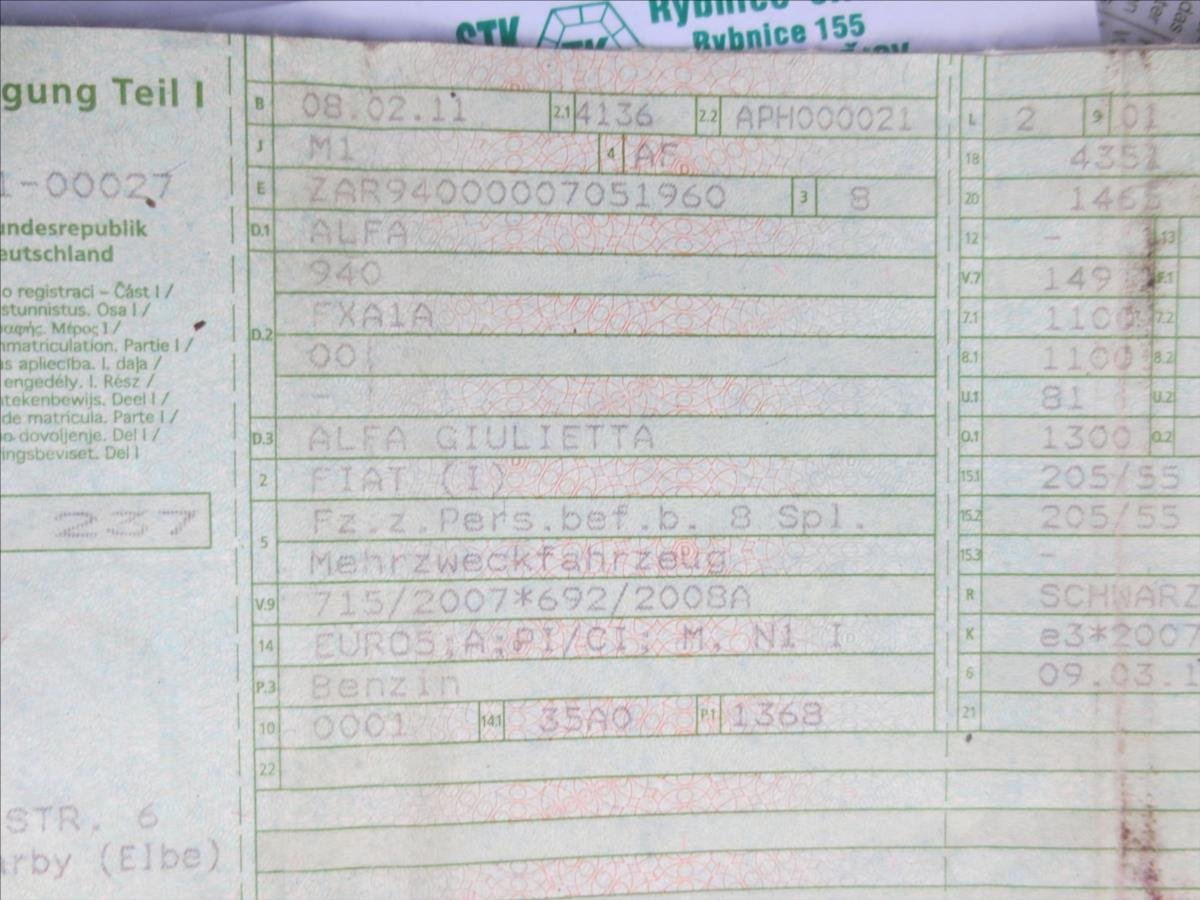 STK
Rybnice 155
gung Teil I
1-00027
undesrepublik
eutschland
o registraci – Část I /
stunnistus. Osa I /
αφής. Μέρος I /
nmatriculation. Partie I /
as apliecība. I. daļa /
engedély. I. Rész /
tekenbewijs. Deel I /
de matrícula. Parte I /
o dovoljenje. Del I /
ingsbeviset. Del I
237
STR. 6
arby (Elbe)
B 08.02.11 2.1 4136 2.2 APH000021
J M1 4 AF
E ZAR94000007051960 3 8
D.1 ALFA
940
D.2 FXA1A
00
-
D.3 ALFA GIULIETTA
2 FIAT (I)
5 Fz.z.Pers.bef.b. 8 Spl.
Mehrzweckfahrzeug
V.9 715/2007*692/2008A
14 EURO5;A;PI/CI; M, N1 I
P.3 Benzin
10 0001 14.1 35A0 P.1 1368
22
L 2 9 01
18 4351
20 146
12 - 13
V.7 149 F.1
7.1 1100 7.2
8.1 1100 8.2
U.1 81 U.2
O.1 1300 O.2
15.1 205/55
15.2 205/55
15.3 -
R SCHWARZ
K e3*2007
6 09.03.1
21